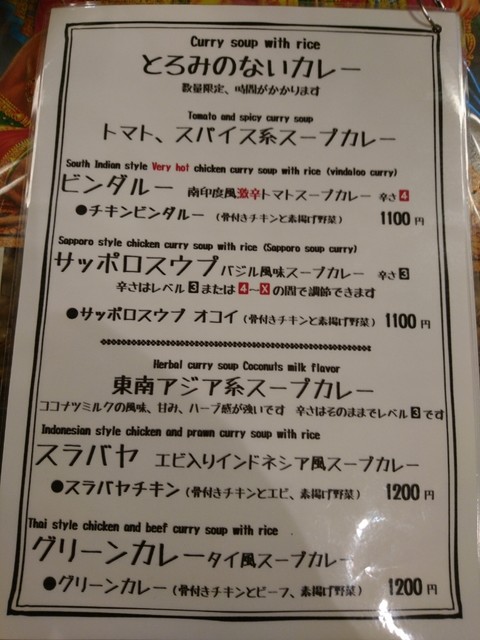 Curry soup with rice
とろみのないカレー
数量限定、時間がかかります
Tomato and spicy curry soup
トマト、スパイス系スープカレー
South Indian style Very hot chicken curry soup with rice (vindaloo curry)
ビンダルー 南印度風激辛トマトスープカレー 辛さ4
●チキンビンダルー (骨付きチキンと素揚げ野菜) 1100円
Sapporo style chicken curry soup with rice (Sapporo soup curry)
サッポロスウプ バジル風味スープカレー 辛さ3
辛さはレベル3または4~Xの間で調節できます
●サッポロスウプ オコイ (骨付きチキンと素揚げ野菜) 1100円
Herbal curry soup Coconuts milk flavor
東南アジア系スープカレー
ココナツミルクの風味、甘み、ハーブ感が強いです 辛さはそのままでレベル3です
Indonesian style chicken and prawn curry soup with rice
スラバヤ エビ入りインドネシア風スープカレー
●スラバヤチキン (骨付きチキンとエビ、素揚げ野菜) 1200円
Thai style chicken and beef curry soup with rice
グリーンカレー タイ風スープカレー
●グリーンカレー (骨付きチキンとビーフ、素揚げ野菜) 1200円